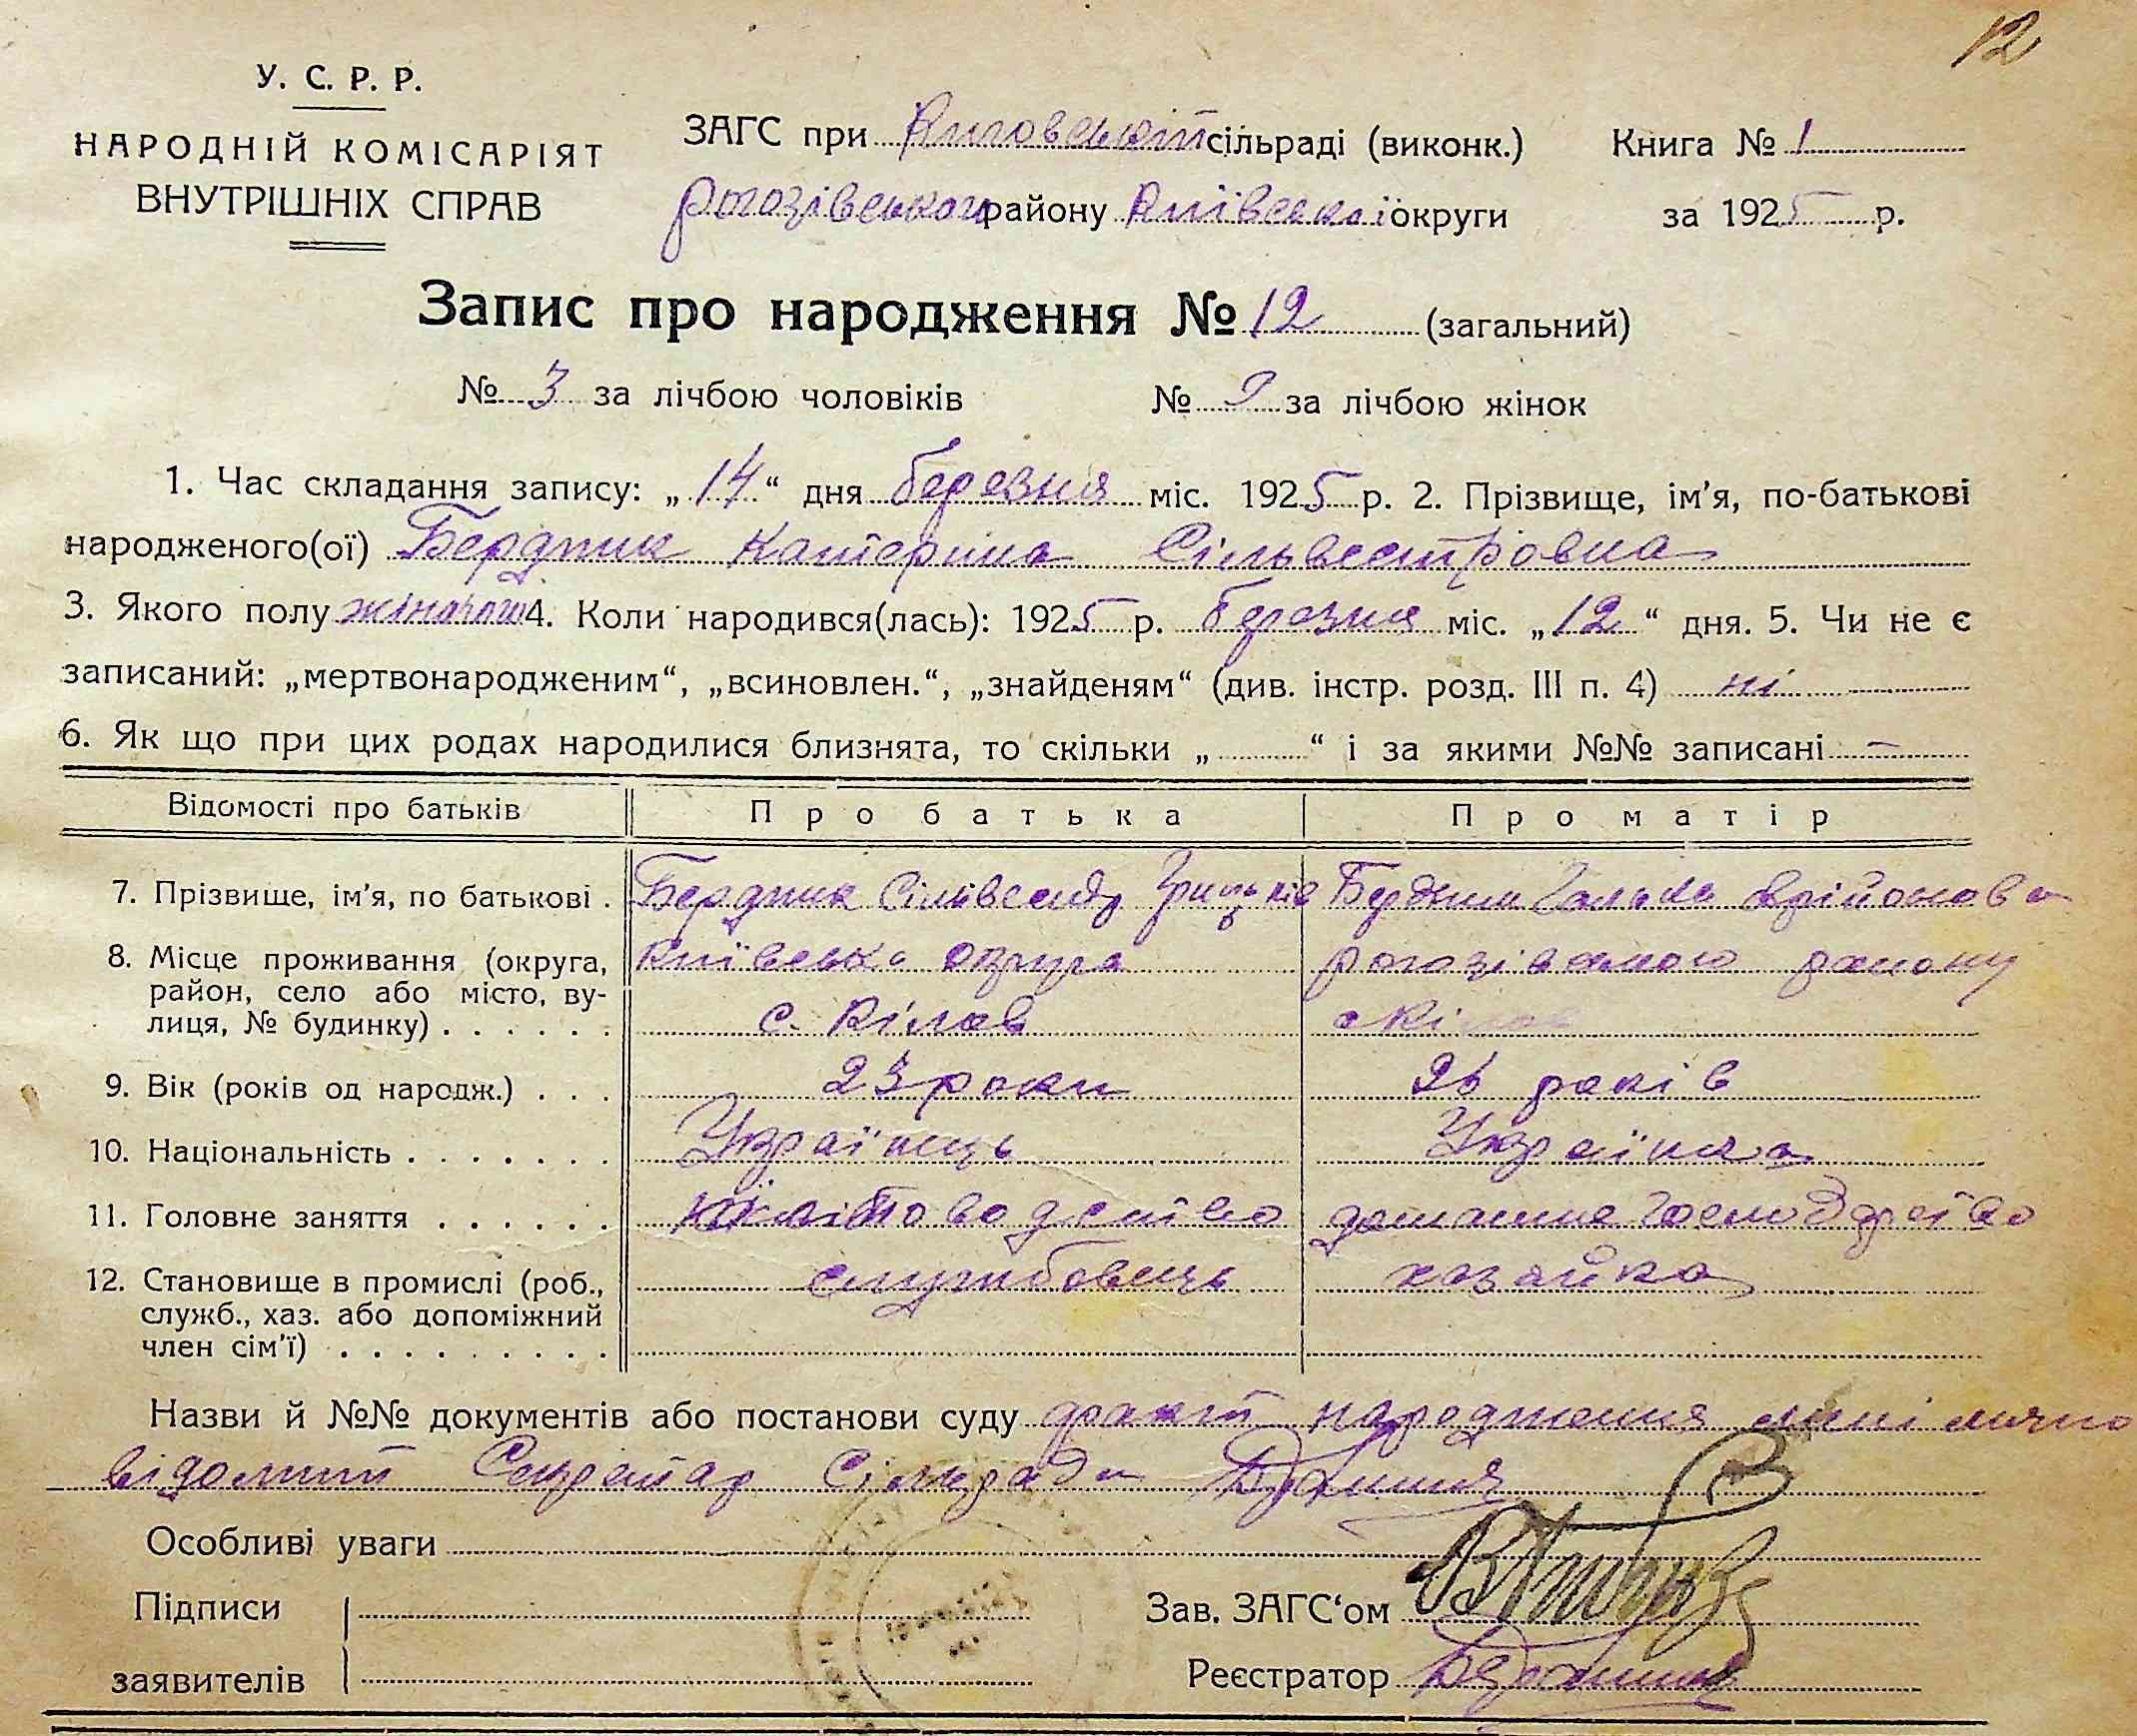 12
У. С. Р. Р.
НАРОДНІЙ КОМІСАРІЯТ
ВНУТРІШНІХ СПРАВ
ЗАГС при сільраді (виконк.) Книга № 1
Рогозівського району Київської округи за 1925 р.
Запис про народження № 12 (загальний)
№ 3 за лічбою чоловіків № 9 за лічбою жінок
1. Час складання запису: „14“ дня березня міс. 1925 р. 2. Прізвище, ім'я, по-батькові
народженого(ої) Бердник Катерина Сільвестровна
3. Якого полу жіночого 4. Коли народився(лась): 1925 р. березня міс. „12“ дня. 5. Чи не є
записаний: „мертвонародженим“, „всиновлен.“, „знайденям“ (див. інстр. розд. III п. 4) ні
6. Як що при цих родах народилися близнята, то скільки „ “ і за якими №№ записані –
Відомості про батьків Про батька Про матір
7. Прізвище, ім'я, по батькові . Бердник Грицьків Бердник
8. Місце проживання (округа, Київська округа Рогозівського району
район, село або місто, ву-
лиця, № будинку) . . . . . . с. Кілов с Кілов
9. Вік (років од народж.) . . . 23 роки 26 років
10. Національність . . . . . . . Українець Українка
11. Головне заняття . . . . . . домашне господарство
12. Становище в промислі (роб., службовець хазяйка
служб., хаз. або допоміжний
член сім'ї) . . . . . . . . .
Назви й №№ документів або постанови суду факт народження мені лично
відомий Секретар Сільради
Особливі уваги
Підписи
Зав. ЗАГС‘ом
заявителів
Реєстратор